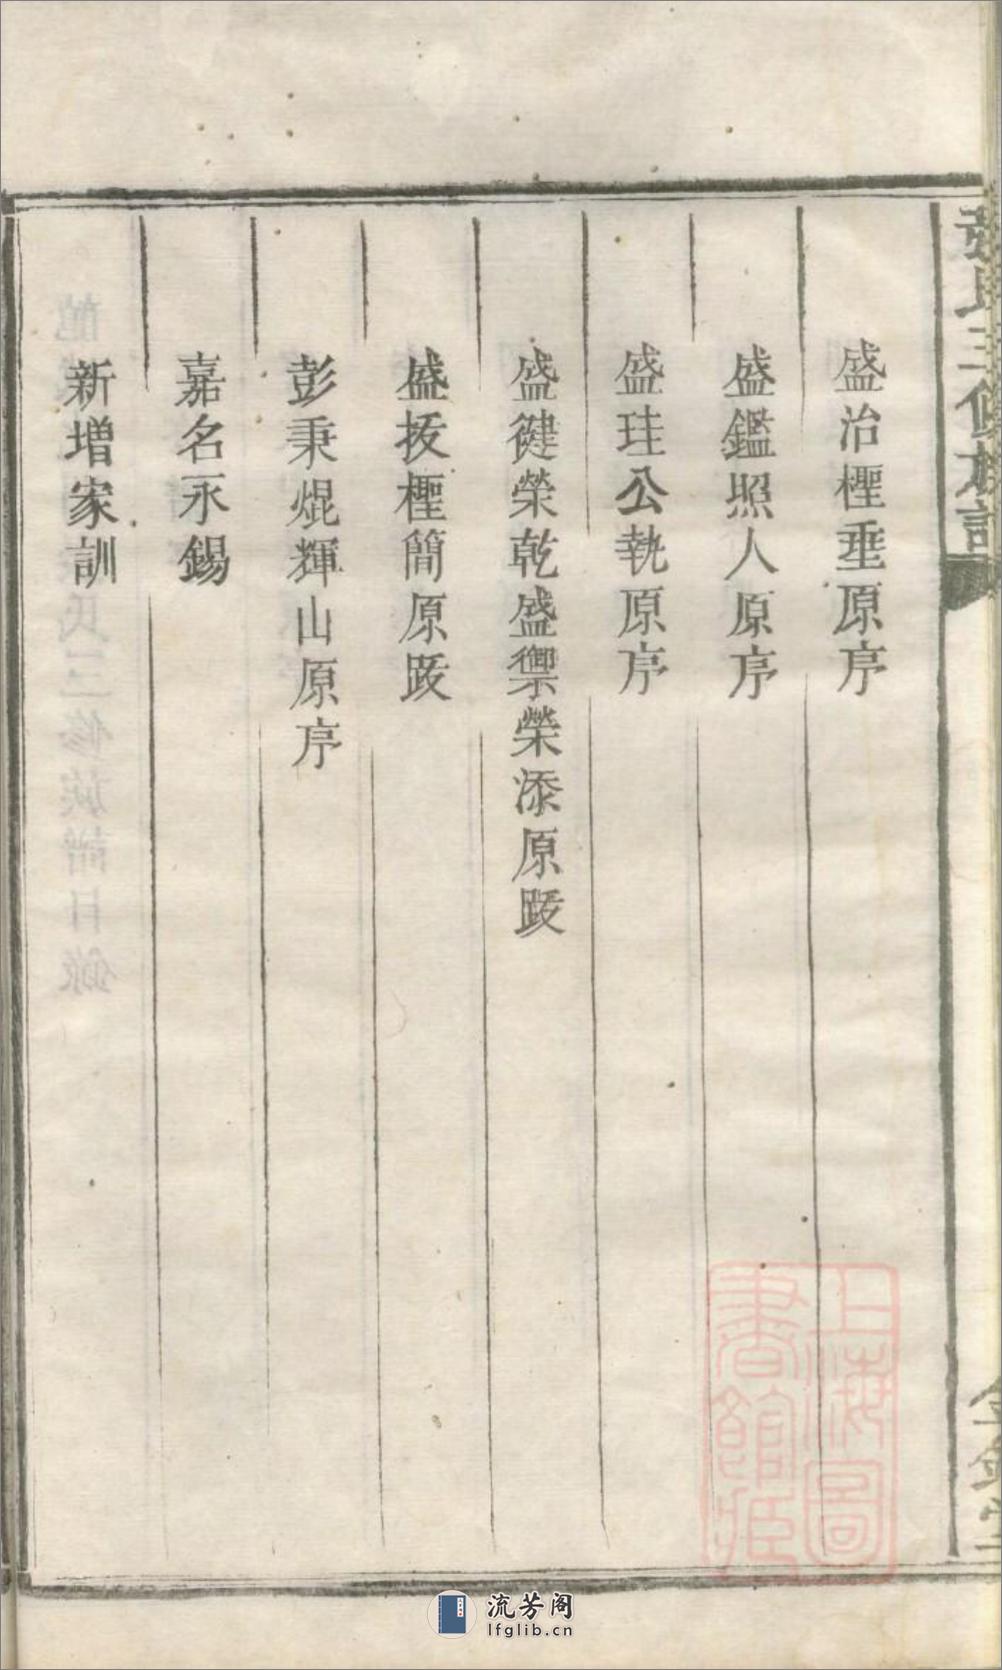 盛治樫垂原序
盛鑑照人原序
盛珪公執原序
盛徤榮乾盛禦榮添原跋
盛拔樫簡原跋
彭秉焜輝山原序
嘉名永錫
新増家訓
氏三修族譜
上海圖
書館藏
流芳阁
lfglib.cn